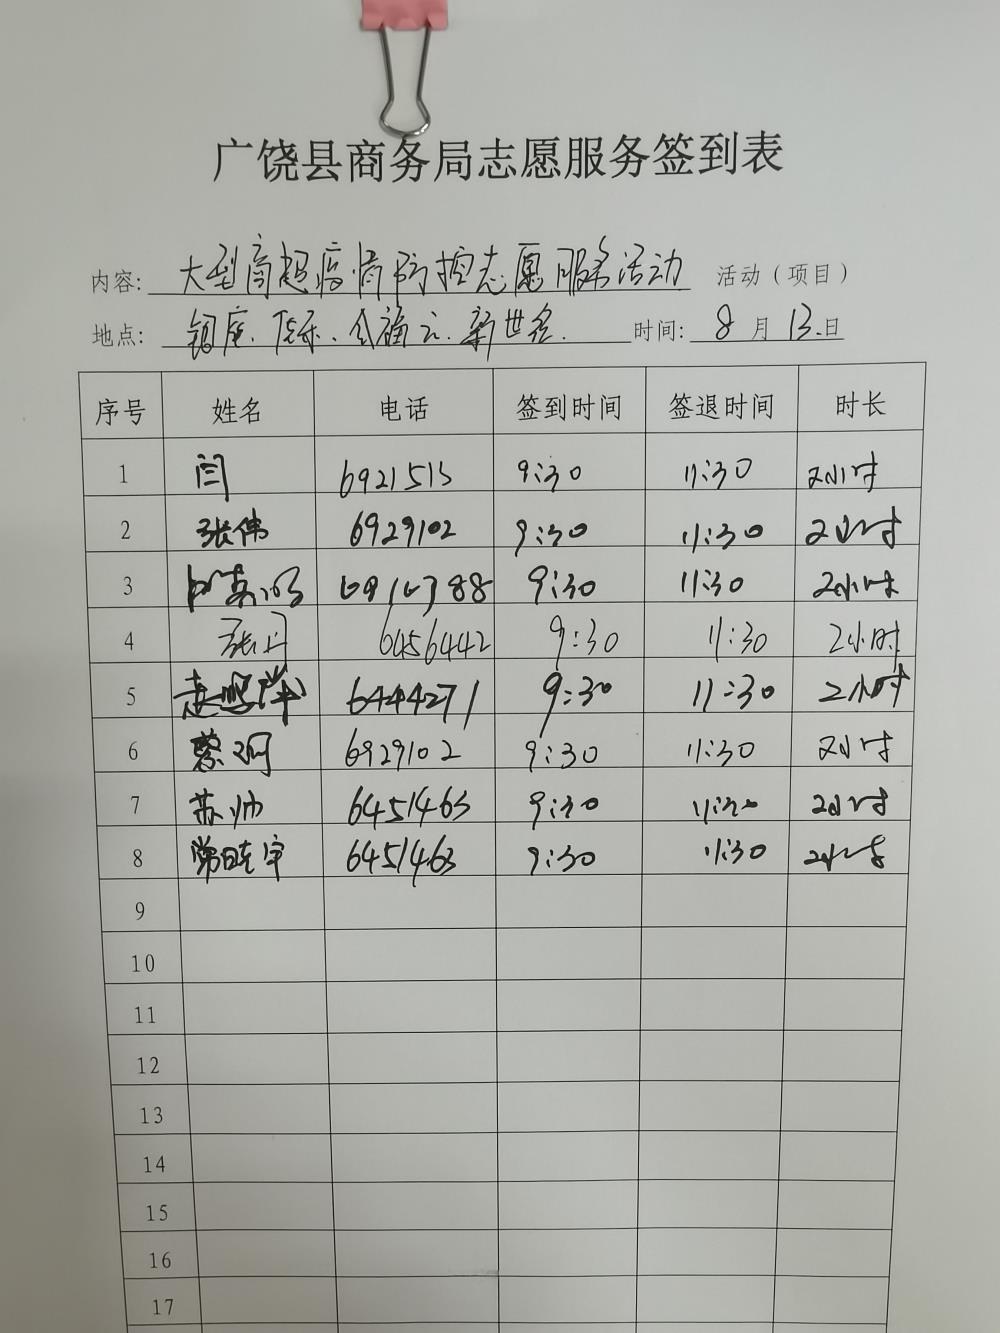 广饶县商务局志愿服务签到表
内容: 大型商超疫情防控志愿服务活动 活动（项目）
地点: 银座、信乐、全福元、新世纪. 时间: 8月13日
序号 姓名 电话 签到时间 签退时间 时长
1 闫 6921513 9:30 11:30 2小时
2 张伟 6929102 9:30 11:30 2小时
3 9:30 11:30 2小时
4 张月 6456442 9:30 11:30 2小时
5 赵鹏洋 6444271 9:30 11:30 2小时
6 6929102 9:30 11:30 2小时
7 苏帅 6451463 9:30 11:30 2小时
8 常晓宇 6451463 9:30 11:30 2小时
9
10
11
12
13
14
15
16
17